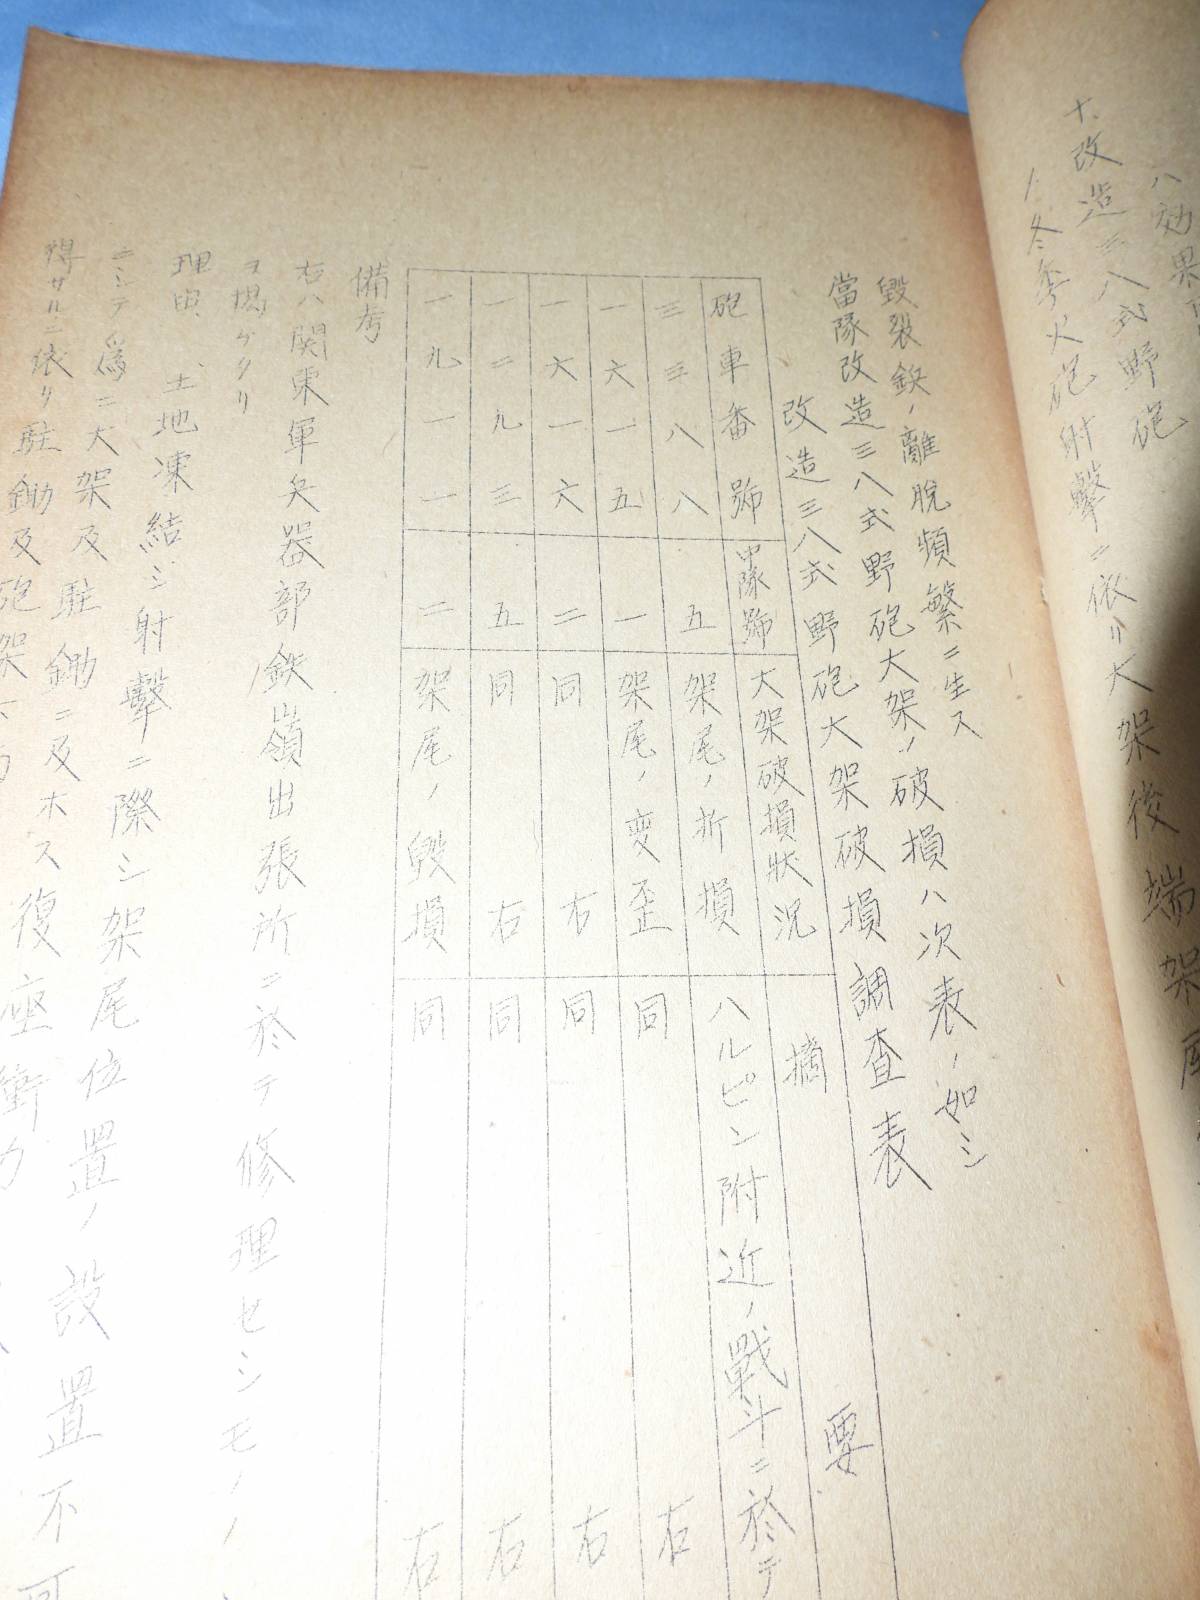 ハ効果
十、改造三八式野砲
1.冬季火砲射撃ニ依リ大架後端架尾
毀裂鋲ノ離脱頻繁ニ生ス
當隊改造三八式野砲大架ノ破損ハ次表ノ如シ
改造三八式野砲大架破損調査表
砲車番號 中隊號 大架破損狀況 摘要
三三八八 五 架尾ノ折損 ハルピン附近ノ戰斗ニ於テ
一六一五 一 架尾ノ変歪 同右
一六一六 二 同右 同右
一二九三 五 同右 同右
一九一一 二 架尾ノ毀損 同右
備考
右ハ関東軍兵器部鉄嶺出張所ニ於テ修理セシモノノ
ヲ掲ゲタリ
理由、土地凍結シ射擊ニ際シ架尾位置ノ設置不可
ニシテ爲ニ大架及駐鋤ニ及ホス復座衝力
得サルニ依リ駐鋤及砲架